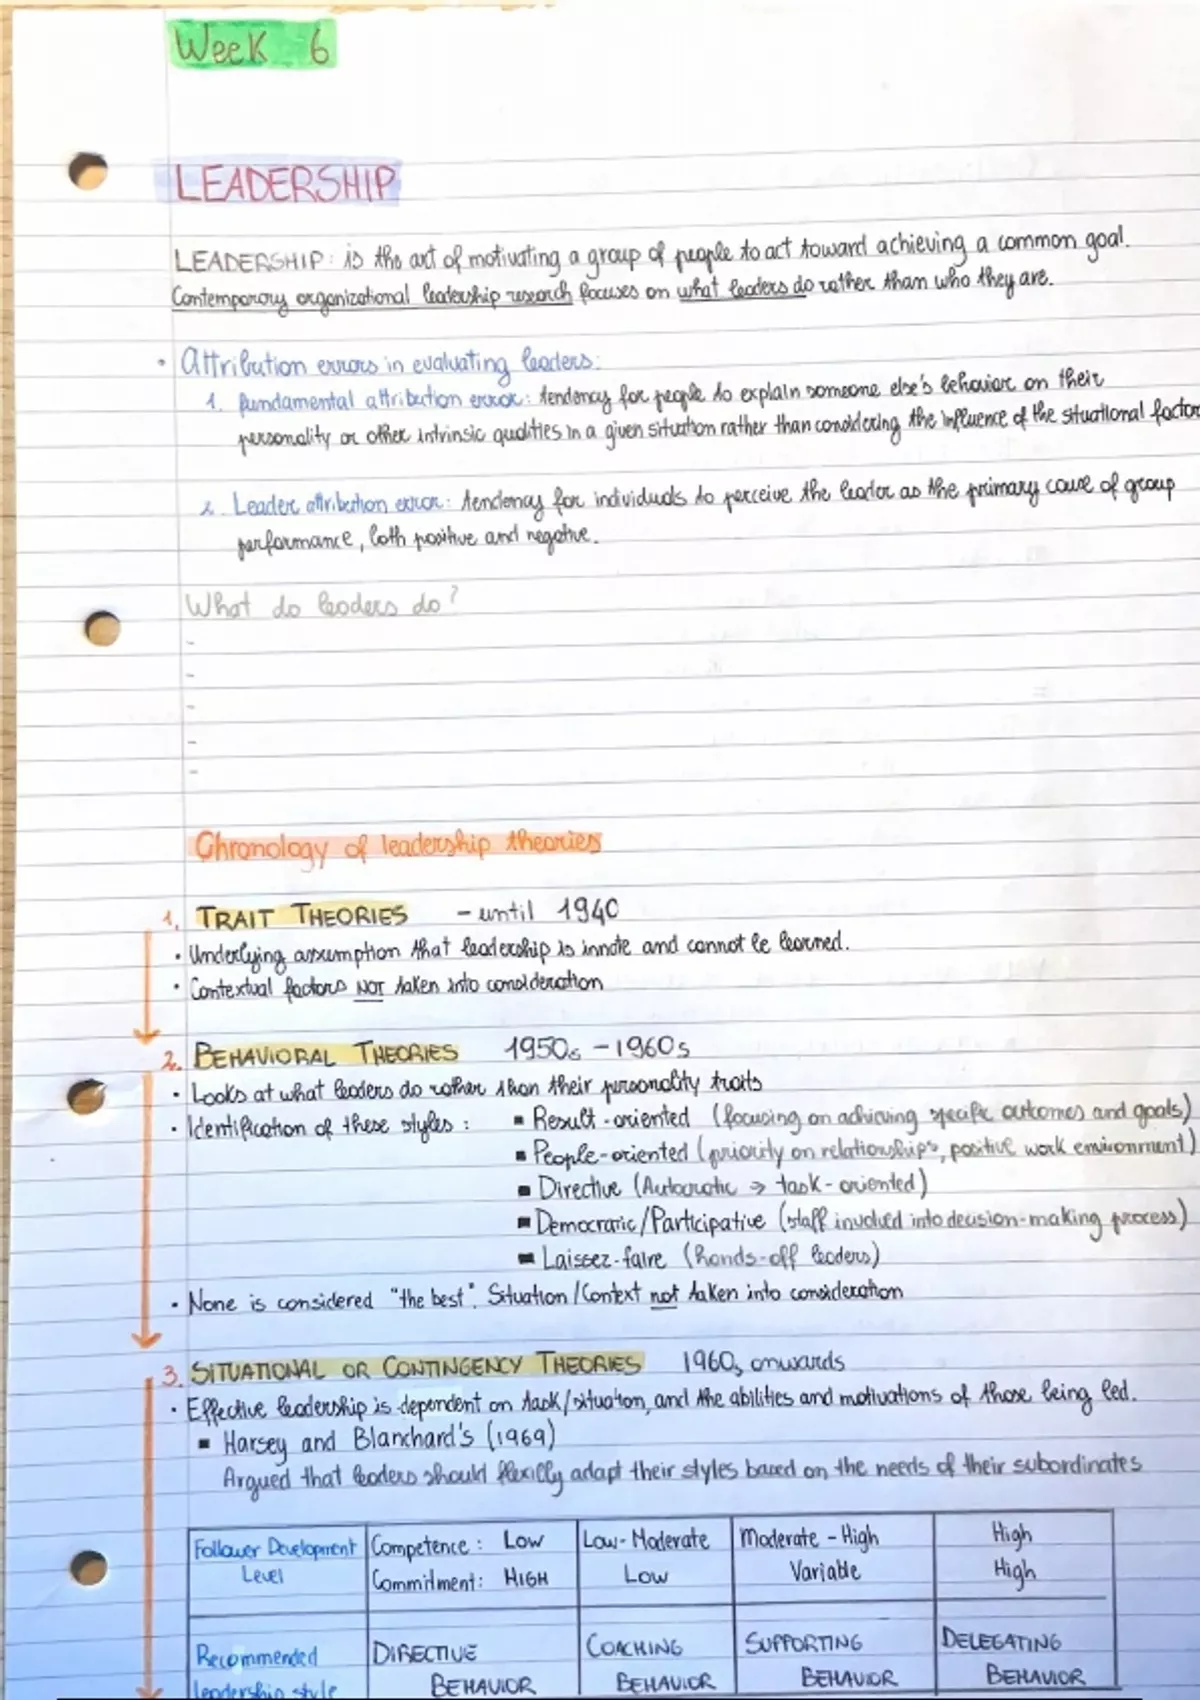 Week 6
LEADERSHIP
LEADERSHIP: is the art of motivating a group of people to act toward achieving a common goal.
Contemporary organizational leadership research focuses on what leaders do rather than who they are.
• Attribution errors in evaluating leaders:
1. fundamental attribution error: tendency for people to explain someone else's behavior on their
personality or other intrinsic qualities in a given situation rather than considering the influence of the situational factor
2. Leader attribution error: tendency for individuals to perceive the leader as the primary cause of group
performance, both positive and negative.
What do leaders do?
-
-
-
-
-
Chronology of leadership theories
1. TRAIT THEORIES - until 1940
• Underlying assumption that leadership is innate and cannot be learned.
• Contextual factors NOT taken into consideration
2. BEHAVIORAL THEORIES 1950s - 1960s
• Looks at what leaders do rather than their personality traits
• Identification of these styles: ▪ Result-oriented (focusing on achieving specific outcomes and goals)
▪ People-oriented (priority on relationships, positive work environment)
▪ Directive (Autocratic → task-oriented)
▪ Democratic/Participative (staff involved into decision-making process)
▪ Laissez-faire (hands-off leaders)
• None is considered "the best". Situation/Context not taken into consideration
3. SITUATIONAL OR CONTINGENCY THEORIES 1960s onwards
• Effective leadership is dependent on task/situation, and the abilities and motivations of those being led.
▪ Harsey and Blanchard's (1969)
Argued that leaders should flexibly adapt their styles based on the needs of their subordinates
Follower Development Competence: Low Low-Moderate Moderate - High High
Level Commitment: HIGH Low Variable High
Recommended DIRECTIVE COACHING SUPPORTING DELEGATING
leadership style BEHAVIOR BEHAVIOR BEHAVIOR BEHAVIOR